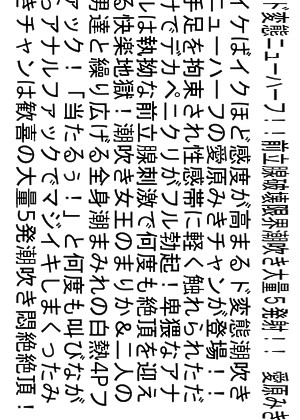 ド変態ニューハーフ!!前立腺破壊限界潮吹き大量5発射!! 愛原みき
イケばイクほど感度が高まるド変態潮吹き
ニューハーフの愛原みきチャンが登場!!
手足を拘束され性感帯に軽く触れられただ
けでデカペニクリがフル勃起!卑猥なアナ
ルは執拗な前立腺刺激で何度も絶頂を迎え
る快楽地獄!潮吹き女王のまりか&二人の
男達と繰り広げる全身潮まみれの白熱4Pフ
ァック!「当たるぅ!」と何度も叫びなが
らアナルファックでマジイキしまくったみ
きチャンは歓喜の大量5発潮吹き悶絶絶頂!